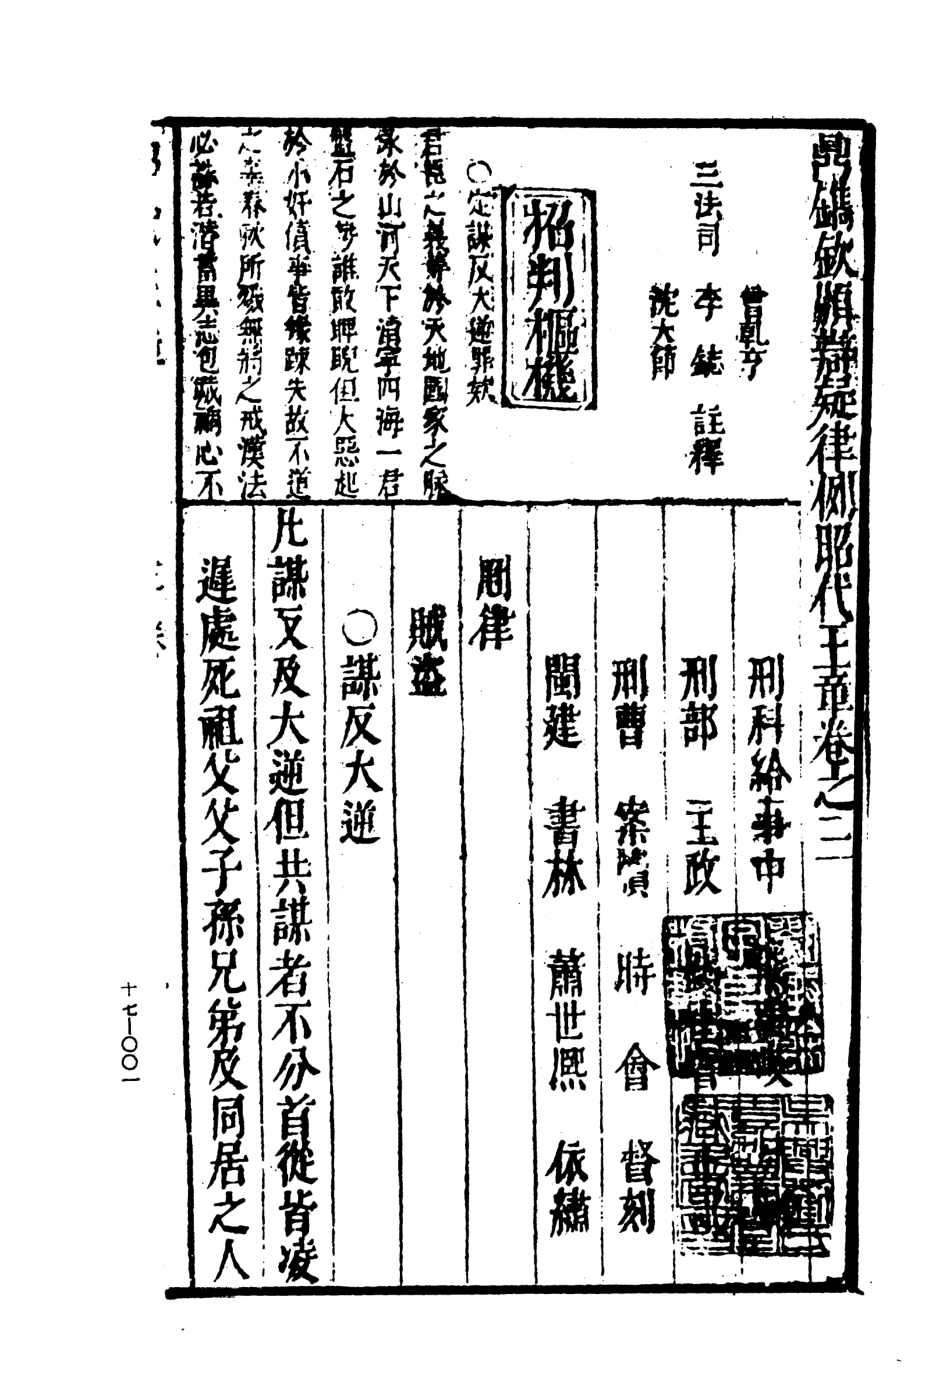 鼎鐫欽頒辯疑律例昭代王章卷之二
曾乾亨
三法司 李鋕 註釋
沈大師
招判樞機
○定謀反大逆罪欵
君臣之義等於天地國家之脉
於山河天下清寧四海一君
盤石之勢誰敢睥睨但大惡起
於小奸僨事皆緣踈失故不道
之春秋所無將之戒漢法
必誅若潛蓄異志包藏禍心不
刑科給事中
刑部 王政
刑曹 案牘 時會 督刻
閩建 書林 蕭世熈 依繡
刑律
賊盜
○謀反大逆
凡謀反及大逆但共謀者不分首從皆凌
遲處死祖父父子孫兄弟及同居之人
十七—〇〇一